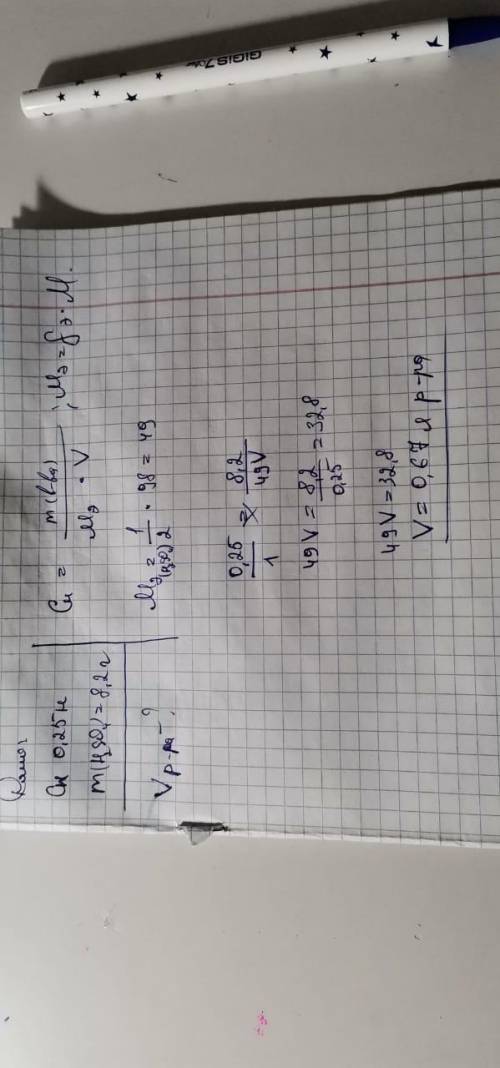 Дано:
Cн 0,25н
m(H₂SO₄)=8,2г
Vр-ра-?
Cн = m(в-ва) / Mэ · V ; Mэ = fэ · M.
Mэ(H₂SO₄) = 1/2 · 98 = 49
0,25/1 = 8,2/49V
49V = 8,2/0,25 = 32,8
49V = 32,8
V = 0,67 л р-ра